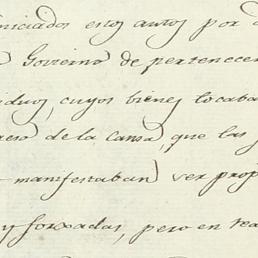 iniciados estos autos por
Govierno de pertenecer
iduos, cuyos bienes tocaba
de la Causa, que las
manifestaban ver prop
y forzadas, pero en rea